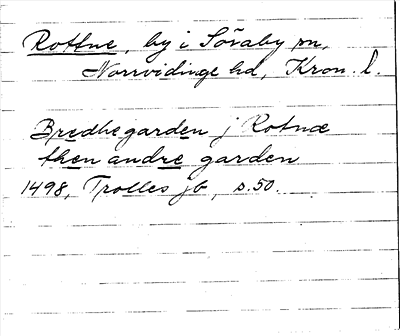 Rottne, by i Söraby sn,
Norrvidinge hd, Kron. l.
Bredhegarden j Rotnæ
then andre garden
1498, Trolles jb, s. 50.